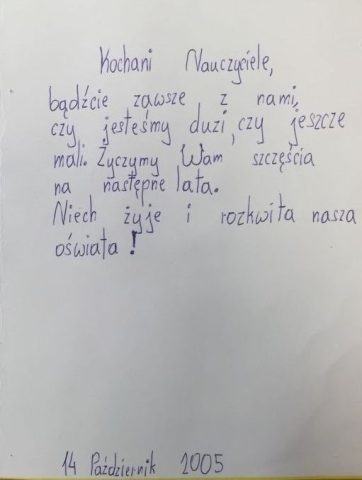 Kochani Nauczyciele,
bądźcie zawsze z nami,
czy jesteśmy duzi, czy jeszcze
mali. Życzymy Wam szczęścia
na następne lata.
Niech żyje i rozkwita nasza
oświata!
14 Październik 2005